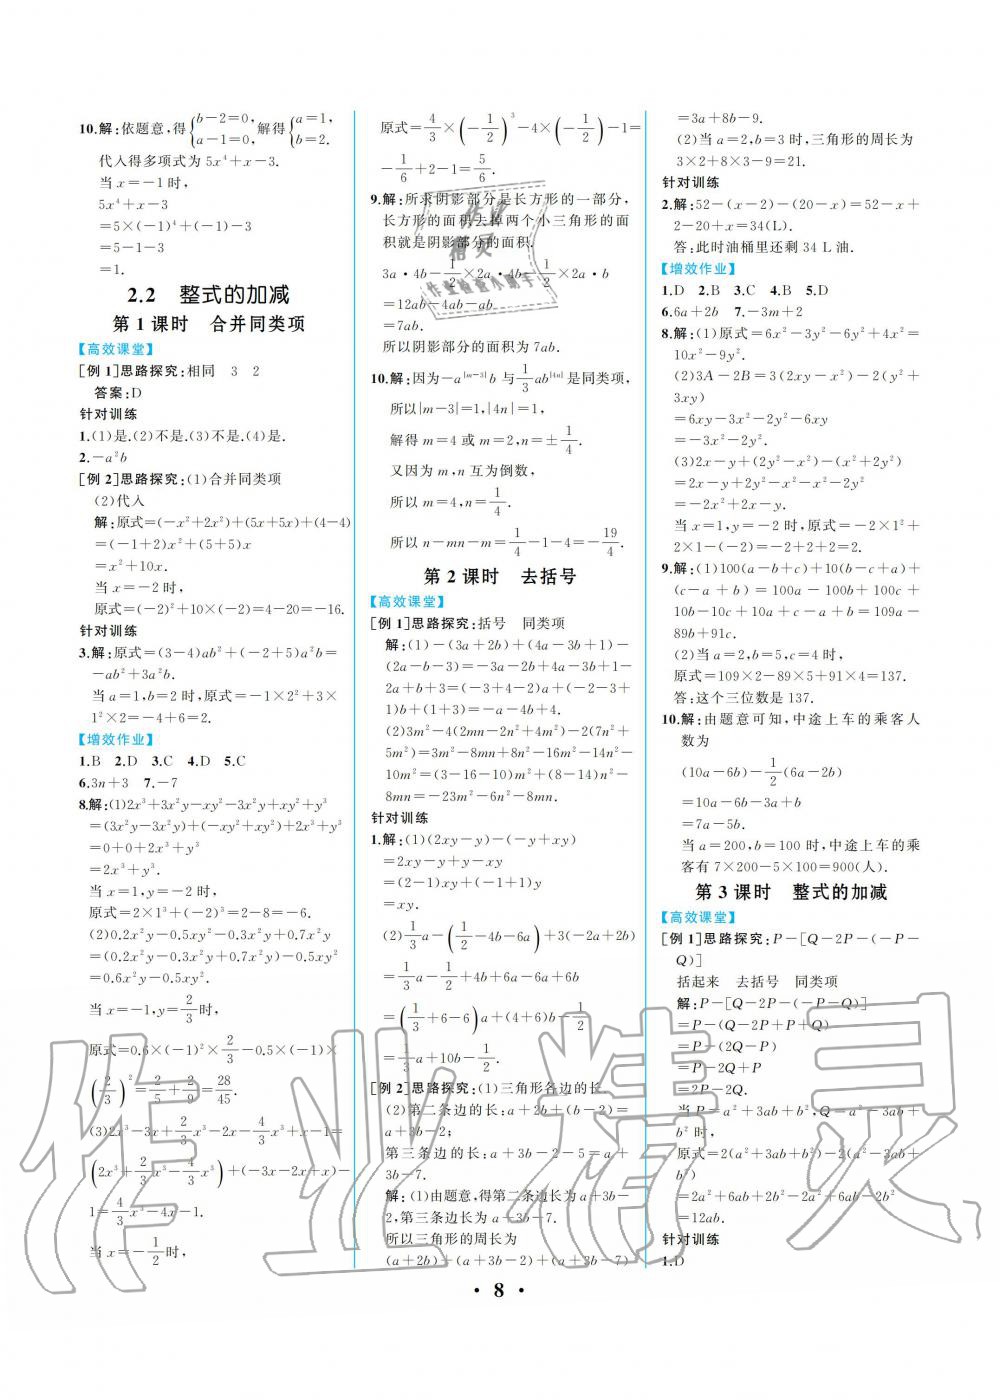 10.解:依题意,得{b-2=0, a-1=0, 解得{a=1, b=2.
代入得多项式为 5x⁴+x-3.
当 x=-1 时,
5x⁴+x-3
=5×(-1)⁴+(-1)-3
=5-1-3
=1.
2.2 整式的加减
第 1 课时 合并同类项
【高效课堂】
[例 1]思路探究:相同 3 2
答案:D
针对训练
1.(1)是.(2)不是.(3)不是.(4)是.
2.-a²b
[例 2]思路探究:(1)合并同类项
(2)代入
解:原式=(-x²+2x²)+(5x+5x)+(4-4)
=(-1+2)x²+(5+5)x
=x²+10x.
当 x=-2 时,
原式=(-2)²+10×(-2)=4-20=-16.
针对训练
3.解:原式=(3-4)ab²+(-2+5)a²b=
-ab²+3a²b.
当 a=1,b=2 时,原式=-1×2²+3×
1²×2=-4+6=2.
【增效作业】
1.B 2.D 3.C 4.D 5.C
6.3n+3 7.-7
8.解:(1)2x³+3x²y-xy²-3x²y+xy²+y³
=(3x²y-3x²y)+(-xy²+xy²)+2x³+y³
=0+0+2x³+y³
=2x³+y³.
当 x=1,y=-2 时,
原式=2×1³+(-2)³=2-8=-6.
(2)0.2x²y-0.5xy²-0.3x²y+0.7x²y
=(0.2x²y-0.3x²y+0.7x²y)-0.5xy²
=0.6x²y-0.5xy².
当 x=-1,y=2/3时,
原式=0.6×(-1)²×2/3-0.5×(-1)×
(2/3)²=2/5+2/9=28/45.
(3)2x³-3x+2/3x³-2x-4/3x³+x-1=
(2x³+2/3x³-4/3x³)+(-3x-2x+x)-
1=4/3x³-4x-1.
当 x=-1/2时,
原式=4/3×(-1/2)³-4×(-1/2)-1=
-1/6+2-1=5/6.
9.解:所求阴影部分是长方形的一部分,
长方形的面积去掉两个小三角形的面
积就是阴影部分的面积.
3a·4b-1/2×2a·4b-1/2×2a·b
=12ab-4ab-ab
=7ab.
所以阴影部分的面积为 7ab.
10.解:因为-a^|m-3|b 与1/3ab^|4n|是同类项,
所以|m-3|=1,|4n|=1,
解得 m=4 或 m=2,n=±1/4.
又因为 m,n 互为倒数,
所以 m=4,n=1/4.
所以 n-mn-m=1/4-1-4=-19/4.
第 2 课时 去括号
【高效课堂】
[例 1]思路探究:括号 同类项
解:(1)-(3a+2b)+(4a-3b+1)-
(2a-b-3)=-3a-2b+4a-3b+1-
2a+b+3=(-3+4-2)a+(-2-3+
1)b+(1+3)=-a-4b+4.
(2)3m²-4(2mn-2n²+4m²)-2(7n²+
5m²)=3m²-8mn+8n²-16m²-14n²-
10m²=(3-16-10)m²+(8-14)n²-
8mn=-23m²-6n²-8mn.
针对训练
1.解:(1)(2xy-y)-(-y+xy)
=2xy-y+y-xy
=(2-1)xy+(-1+1)y
=xy.
(2)1/3a-(1/2-4b-6a)+3(-2a+2b)
=1/3a-1/2+4b+6a-6a+6b
=(1/3+6-6)a+(4+6)b-1/2
=1/3a+10b-1/2.
[例 2]思路探究:(1)三角形各边的长
(2)第二条边的长:a+2b+(b-2)=
a+3b-2;
第三条边的长:a+3b-2-5=a+
3b-7.
解:(1)由题意,得第二条边长为 a+3b-
2,第三条边长为 a+3b-7.
所以三角形的周长为
(a+2b)+(a+3b-2)+(a+3b-7)
=3a+8b-9.
(2)当 a=2,b=3 时,三角形的周长为
3×2+8×3-9=21.
针对训练
2.解:52-(x-2)-(20-x)=52-x+
2-20+x=34(L).
答:此时油桶里还剩 34 L 油.
【增效作业】
1.D 2.B 3.C 4.B 5.D
6.6a+2b 7.-3m+2
8.解:(1)原式=6x²-3y²-6y²+4x²=
10x²-9y².
(2)3A-2B=3(2xy-x²)-2(y²+
3xy)
=6xy-3x²-2y²-6xy
=-3x²-2y².
(3)2x-y+(2y²-x²)-(x²+2y²)
=2x-y+2y²-x²-x²-2y²
=-2x²+2x-y.
当 x=1,y=-2 时,原式=-2×1²+
2×1-(-2)=-2+2+2=2.
9.解:(1)100(a-b+c)+10(b-c+a)+
(c-a+b)=100a-100b+100c+
10b-10c+10a+c-a+b=109a-
89b+91c.
(2)当 a=2,b=5,c=4 时,
原式=109×2-89×5+91×4=137.
答:这个三位数是 137.
10.解:由题意可知,中途上车的乘客人
数为
(10a-6b)-1/2(6a-2b)
=10a-6b-3a+b
=7a-5b.
当 a=200,b=100 时,中途上车的乘
客有 7×200-5×100=900(人).
第 3 课时 整式的加减
【高效课堂】
[例 1]思路探究:P-[Q-2P-(-P-
Q)]
括起来 去括号 同类项
解:P-[Q-2P-(-P-Q)]
=P-(Q-2P+P+Q)
=P-(2Q-P)
=P-2Q+P
=2P-2Q.
当 P=a²+3ab+b²,Q=a²-3ab+
b² 时,
原式=2(a²+3ab+b²)-2(a²-3ab+b²)
=2a²+6ab+2b²-2a²+6ab-2b²
=12ab.
针对训练
1.D
· 8 ·
作业精灵